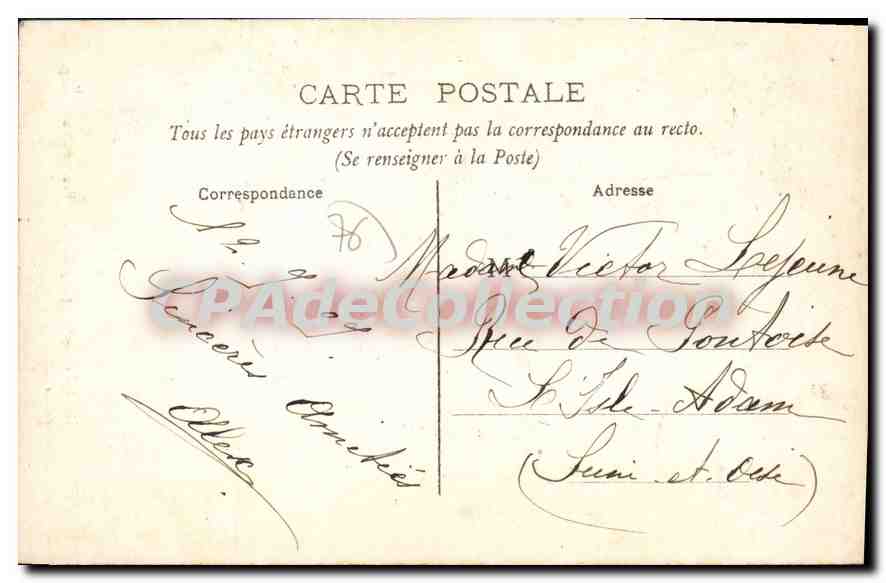 CARTE POSTALE
Tous les pays étrangers n'acceptent pas la correspondance au recto.
(Se renseigner à la Poste)
Correspondance
Adresse
76
Sincères Amitiés
Alex
Madame Victor Lejeune
Rue de Pontoise
L'Isle-Adam
(Seine-et-Oise)
CPAdeCollection